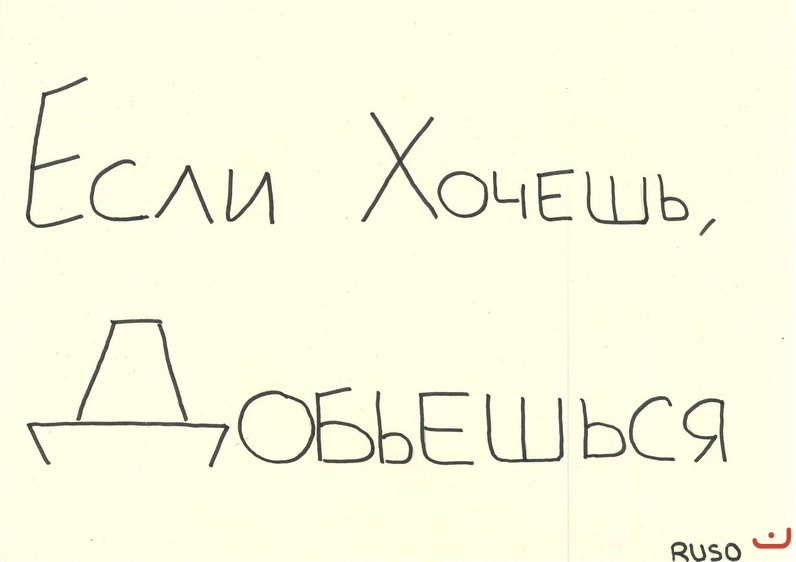 Если Хочешь,
Добьешься
RUSO